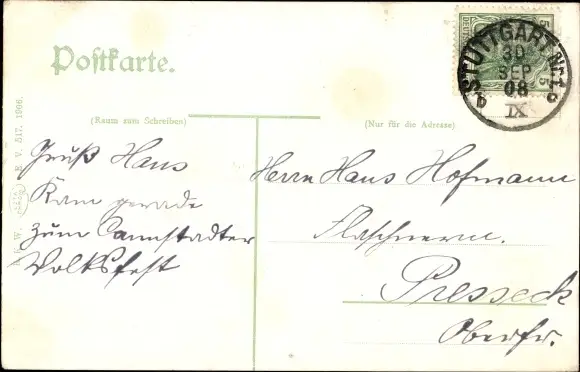 Postkarte.
STUTTGART Nr.1
30
SEP
08
IX
b c
5
(Raum zum Schreiben)
(Nur für die Adresse)
Gruß Hans
Kam gerade
zum Cannstadter
Volksfest
Herrn Hans Hofmann
Flaschnerm.
Presseck
Oberfr.
E. V. 517. 1906.